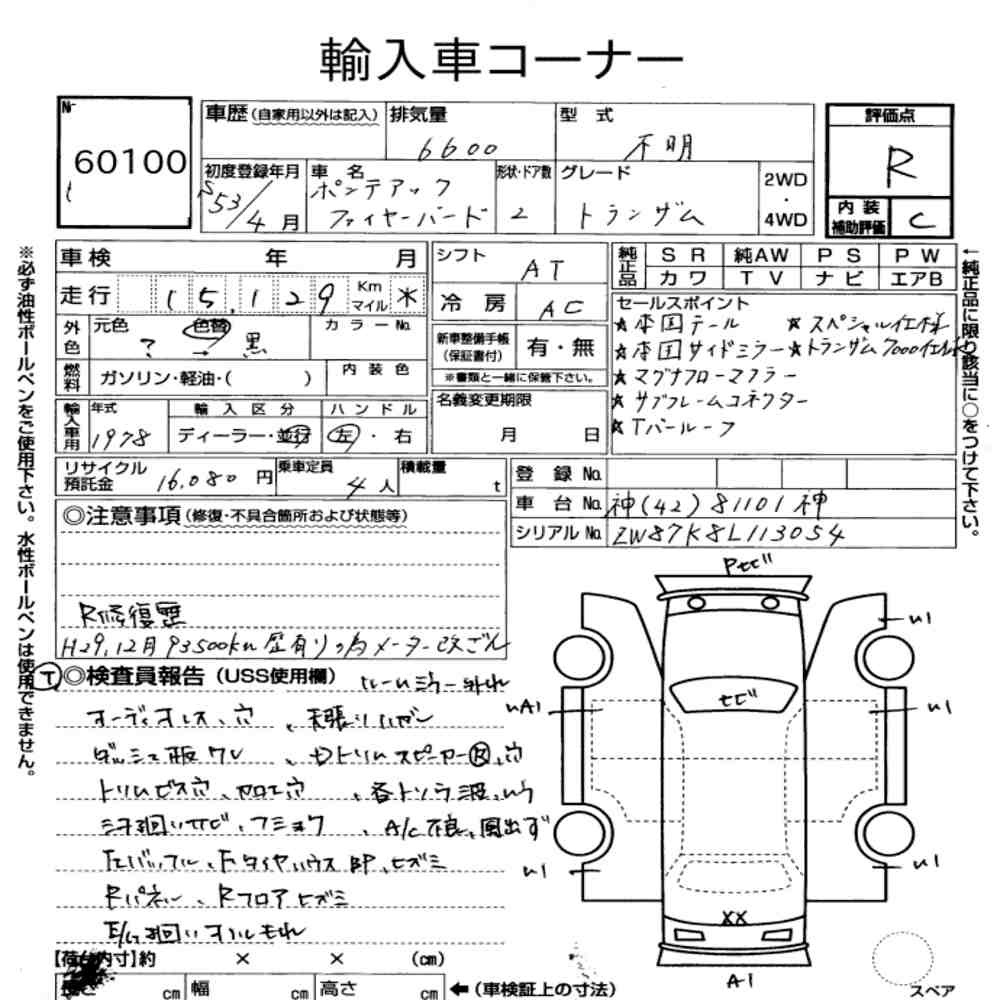 輸入車コーナー
№
60100
車歴(自家用以外は記入)
排気量
6600
型 式
不明
評価点
R
初度登録年月
S53/4月
車 名
ポンテアック
ファイヤーバード
形状・ドア数
2
グレード
トランザム
2WD
・
4WD
内装
補助評価
C
※必ず油性ボールペンをご使用下さい。水性ボールペンは使用できません。
車検 年 月
走行 15,129 Km マイル ※
外色
元色 ? → 色替 黒
カラーNo.
燃料
ガソリン・軽油・( )
内装色
輸入車用
年式
1978
輸入区分
ディーラー・並行
ハンドル
左・右
リサイクル預託金 16,080 円
乗車定員
4人
積載量
t
シフト
AT
冷房
AC
新車整備手帳
(保証書付)
有・無
※書類と一緒に保管下さい。
名義変更期限
月 日
純正品
SR 純AW PS PW
カワ TV ナビ エアB
セールスポイント
★本国テール ★スペシャル仕様
★本国サイドミラー ★トランザム7000仕様
★マグナフローマフラー
★サブフレームコネクター
★Tバールーフ
←純正品に限り該当に○をつけて下さい。
登録No.
車台No. 神(42)81101神
シリアルNo. 2W87K8L113054
◎注意事項(修復・不具合箇所および状態等)
R修復歴
H29.12月 93500km 歴有りの為メーター改ざん
Ⓣ◎検査員報告(USS使用欄) ルームミラー外れ
オーディオレス、穴、天張りハガレ
ダッシュ板ワレ、Dトリムスピーカー、穴
トリムビス穴、加工穴
下廻りサビ、フショク、A/C不良、風出ず
ヒズミ
Rパネル、Rフロアヒズミ
E/G廻りオイルもれ
Pセビ
U1
セビ
UA1
U1
U1
U1
XX
A1
【荷台内寸】約 × × (cm)
長さ cm 幅 cm 高さ cm
←(車検証上の寸法)
スペア